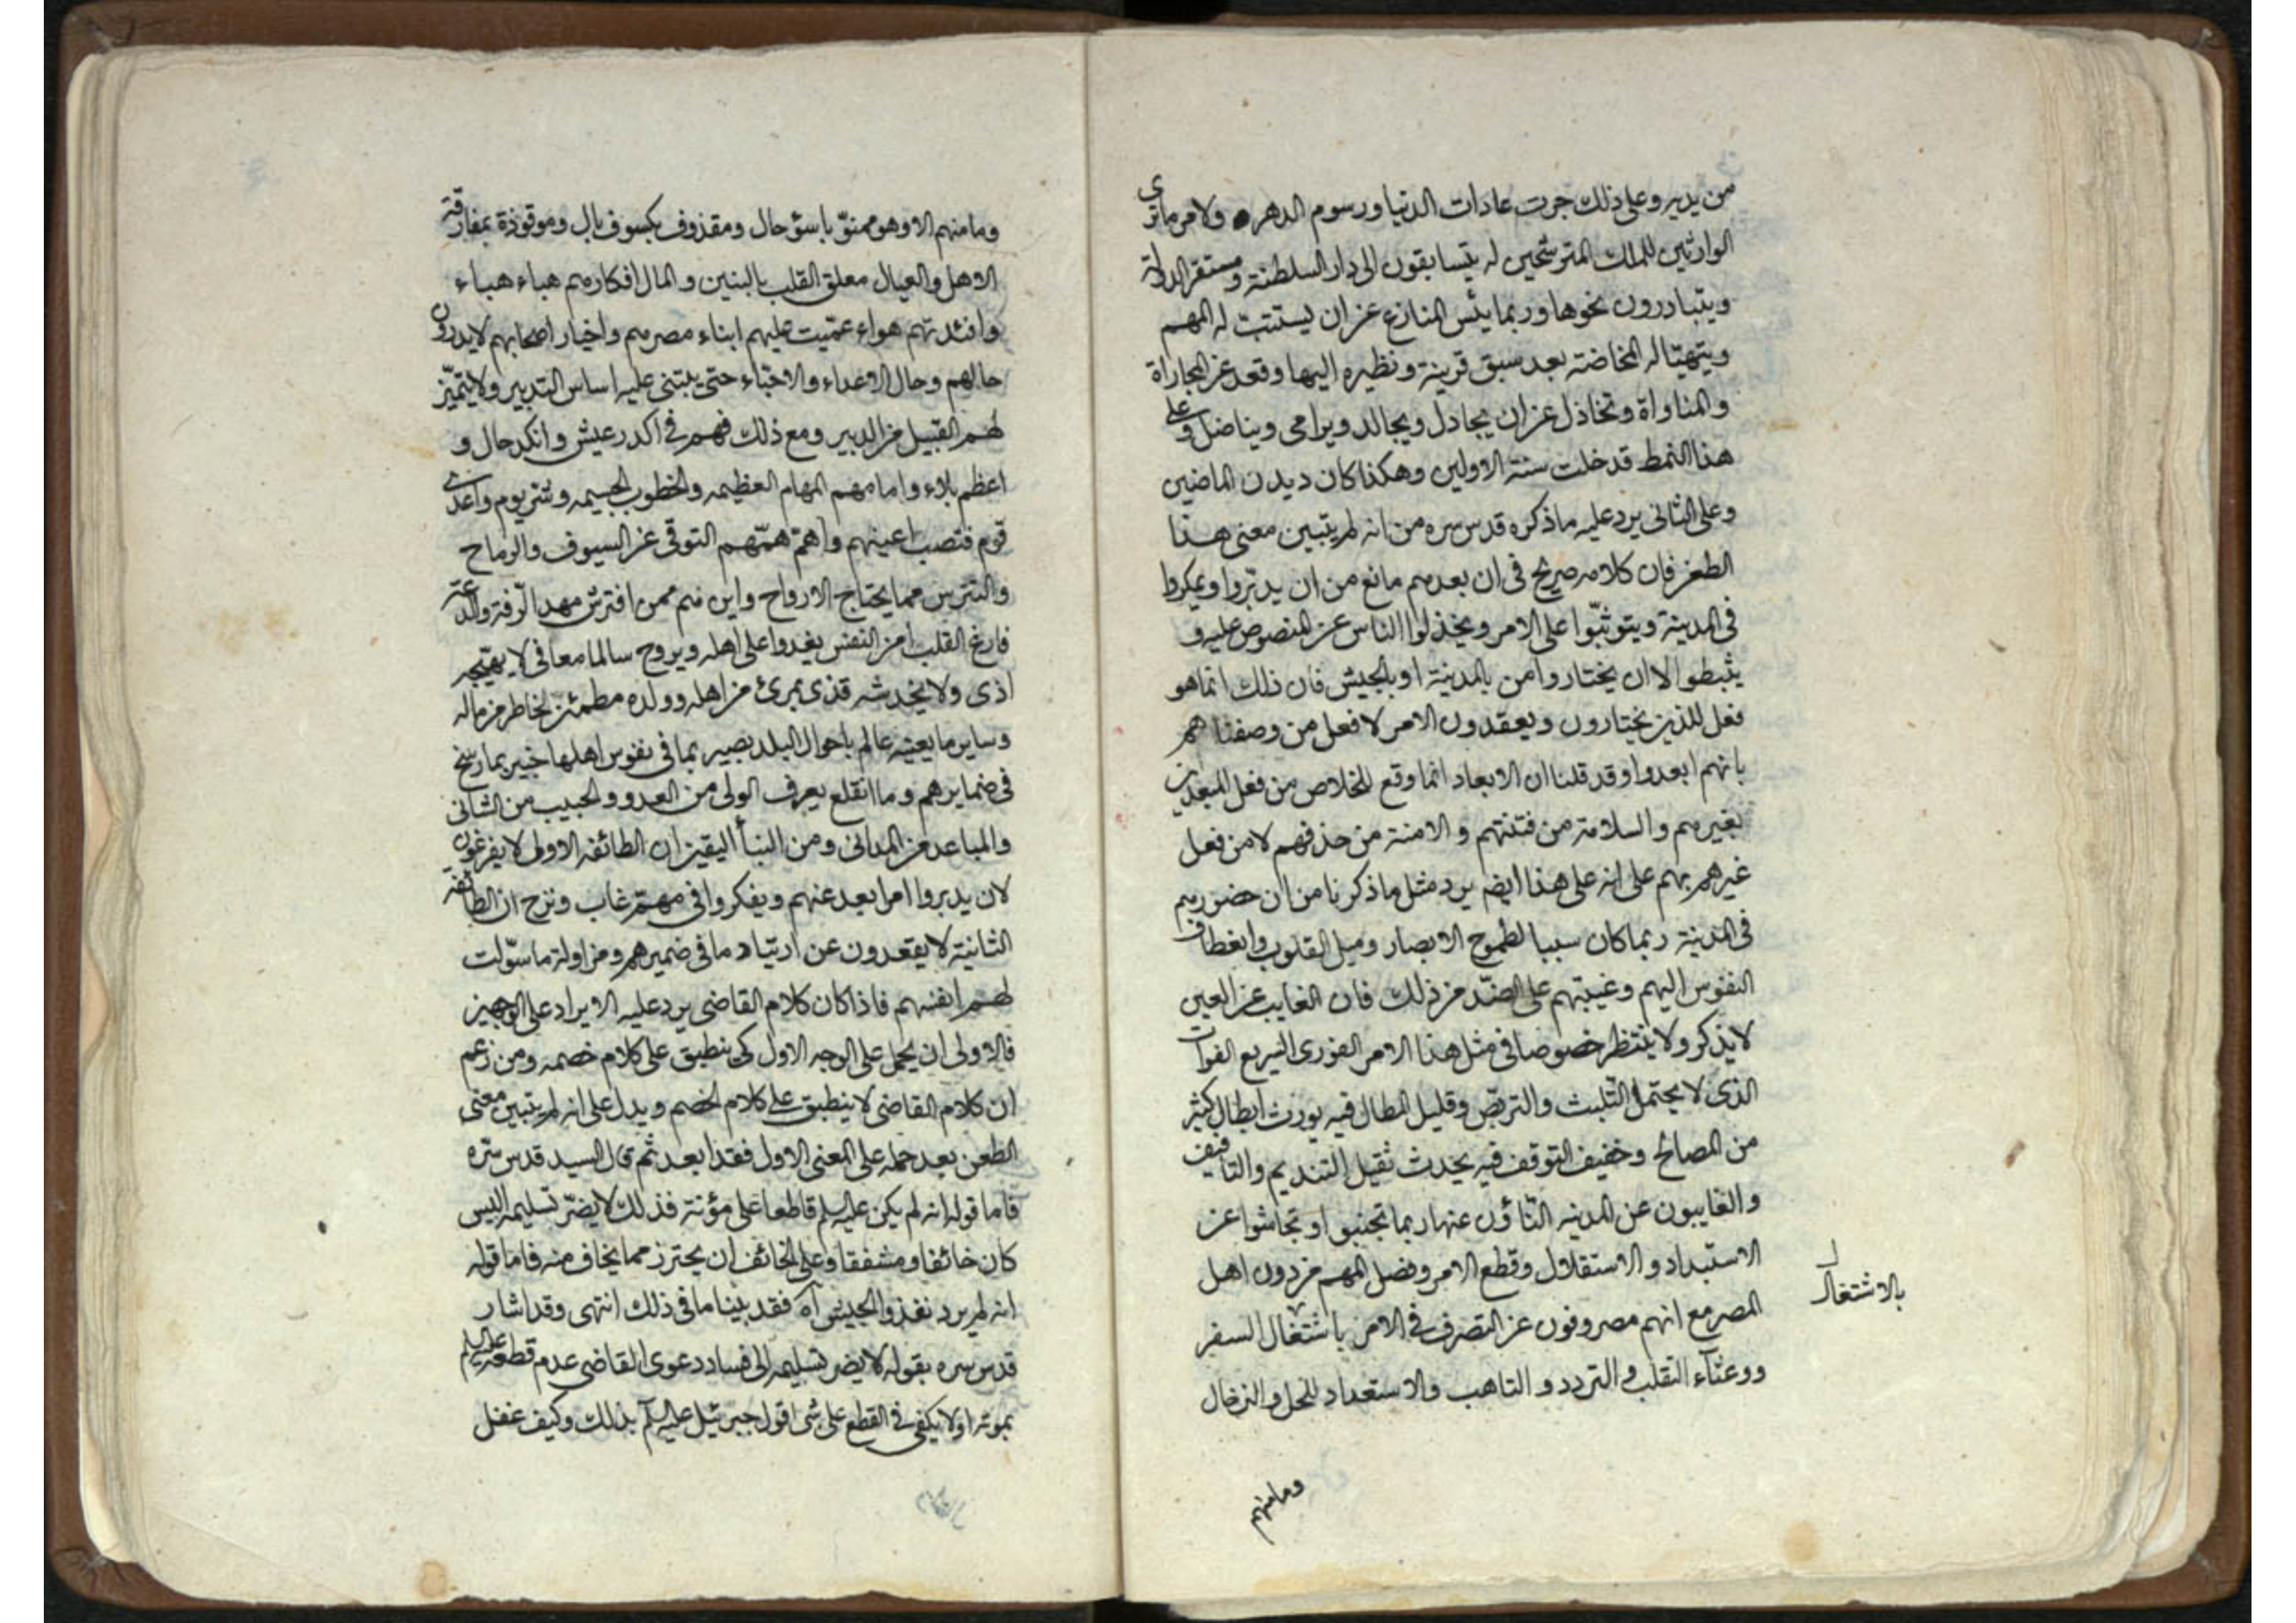 من يدبر وعلى ذلك جرت عادات الدنيا ورسوم الدهر ولامر ما ترى
الوارثين للملك المترشحين له يتسابقون الى دار السلطنة ومستقر الدولة
ويتبادرون نحوها وربما يئس المنازع عن ان يستتب له المهم
ويتهيّا له المخاضة بعد سبق قرينة ونظيره اليها وقعد عن المجاراة
والمناواة وتخاذل عن ان يجادل ويجالد ويرامى ويناضل وعلى
هذا النمط قد خلت سنة الاولين وهكذا كان ديدن الماضين
وعلى الثانى يرد عليه ما ذكره قدس سره من انه لم يتبين معنى هذا
الطعن فان كلامه صريح فى ان بعدهم مانع من ان يدبّروا ويمكروا
فى المدينة ويتوثبّوا على الامر ويخذلوا الناس عن المنصوص عليه و
يثبطوا لا ان يختاروا من بالمدينة او بالجيش فان ذلك انما هو
فعل للذين يختارون ويعقدون الامر لا فعل من وصفناهم
بانهم ابعدوا وقد قلنا ان الابعاد انما وقع للخلاص من فعل المبعدين
بغيرهم والسلامة من فتنتهم والامنة من حذفهم لا من فعل
غيرهم بهم على انه على هذا ايضم يرد مثل ما ذكرنا من ان حضورهم
فى المدينة ربما كان سببا لطموح الابصار وميل القلوب وانعطاف
النفوس اليهم وغيبتهم على الضدّ من ذلك فان الغايب عن العين
لا يذكر ولا ينتظر خصوصا فى مثل هذا الامر الفورى السريع الفوات
الذى لا يحتمل التلبث والتربّص وقليل المطال فيه يورث ابطال كثير
من المصالح وخفيف التوقف فيه يحدث ثقيل التنديم والتافيف
والغايبون عن المدينه النّاؤن عنها ربما تجنبوا وتحاشوا عن
الاستبداد والاستقلال وقطع الامر وفصل المهم من دون اهل
المصر مع انهم مصروفون عن التصرف فى الامر باشتغال السفر
بالاشتغال
ووعثآء التقلب والتردد والتاهب والاستعداد للحل والترحال
ومامنهم
وما منهم الا وهو ممنوّ باسؤ حال ومقذوف بكسوف بال وموقوذة بمفارقة
الاهل والعيال معلق القلب بالبنين والمال افكارهم هباء هباء
وافئدتهم هواء عمّيت عليهم ابناء مصرهم واخبار اصحابهم لا يدرون
حالهم وحال الاعداء والاحباء حتى يبتنى عليه اساس التدبير ولا يتميّز
لهم القبيل من الدبير ومع ذلك فهم فى اكدر عيش وانكد حال و
اعظم بلاء وامامهم المهام العظيمه والخطوب الجسيمه وشر يوم واعدى
قوم فتصب اعينهم واهمّ همّهم التوقى عن السيوف والرماح
والتترس مما يجتاح الارواح واين هم ممن افترش مهد الرّفة والدعة
فارغ القلب امن النفس يغدوا على اهله ويروح سالما معافى لا يهيّجه
اذى ولا يخدشه قذى برئ من اهله وولده مطمئن الخاطر من ماله
وساير ما يعينه عالم باحوال البلد بصير بما فى نفوس اهلها خبير بما رسخ
فى ضمايرهم وما انقلع يعرف الولى من العدو والحبيب من الشانى
والمباعد من المدانى ومن النبأ اليقين ان الطائفه الاولى لا يفرغون
لان يدبروا امرا بعد عنهم ويفكروا فى مهمّ غاب ونزح ان الطائفة
الثانية لا يقعدون عن ارتياد ما فى ضميرهم ومزاولة ما سوّلت
لهم انفسهم فاذا كان كلام القاضى يرد عليه الايراد على الوجهين
فالاولى ان يحمل على الوجه الاول كى ينطبق على كلام خصمه ومن زعم
ان كلام القاضى لا ينطبق على كلام الخصم ويدل على انه لم يتبين معنى
الطعن بعد حمله على المعنى الاول فقد ابعد ثم قال السيد قدس سّره
فاما قوله انه لم يكن عليه السلم قاطعا على مؤتة فذلك لا يضرّ تسليمه اليس
كان خائفا ومشفقا وعلى الخائف ان يحترز مما يخاف منه فاما قوله
انه لم يرد نفذوا الجيش آه فقد بيّنا ما فى ذلك انتهى وقد اشار
قدس سره بقوله لا يضر تسليمه الى فساد دعوى القاضى عدم قطعه عليه السلم
بموته اولا يكفى فى القطع على شى اقول جبرئيل عليه السلم بذلك وكيف غفل